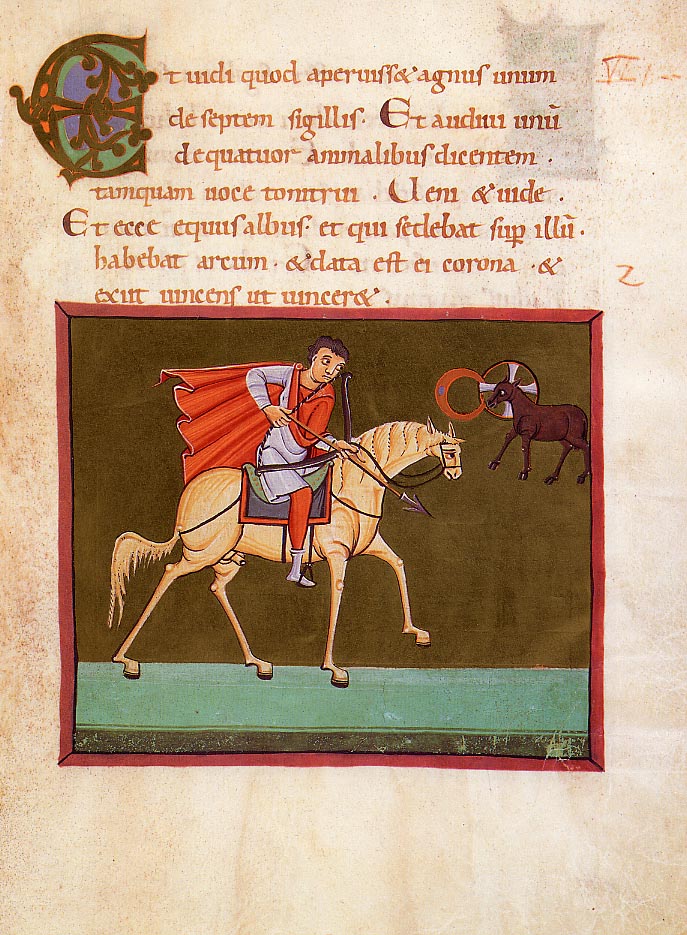 Et uidi quod aperuiss& agnus unum
de septem sigillis · Et audiui unū
de quatuor animalibus dicentem ·
tamquam uoce tonitrui · Ueni & uide ·
Et ecce equus albus · et qui sedebat sup illū ·
habebat arcum · & data est ei corona · &
exiit uincens ut uincer& ·
VI
2